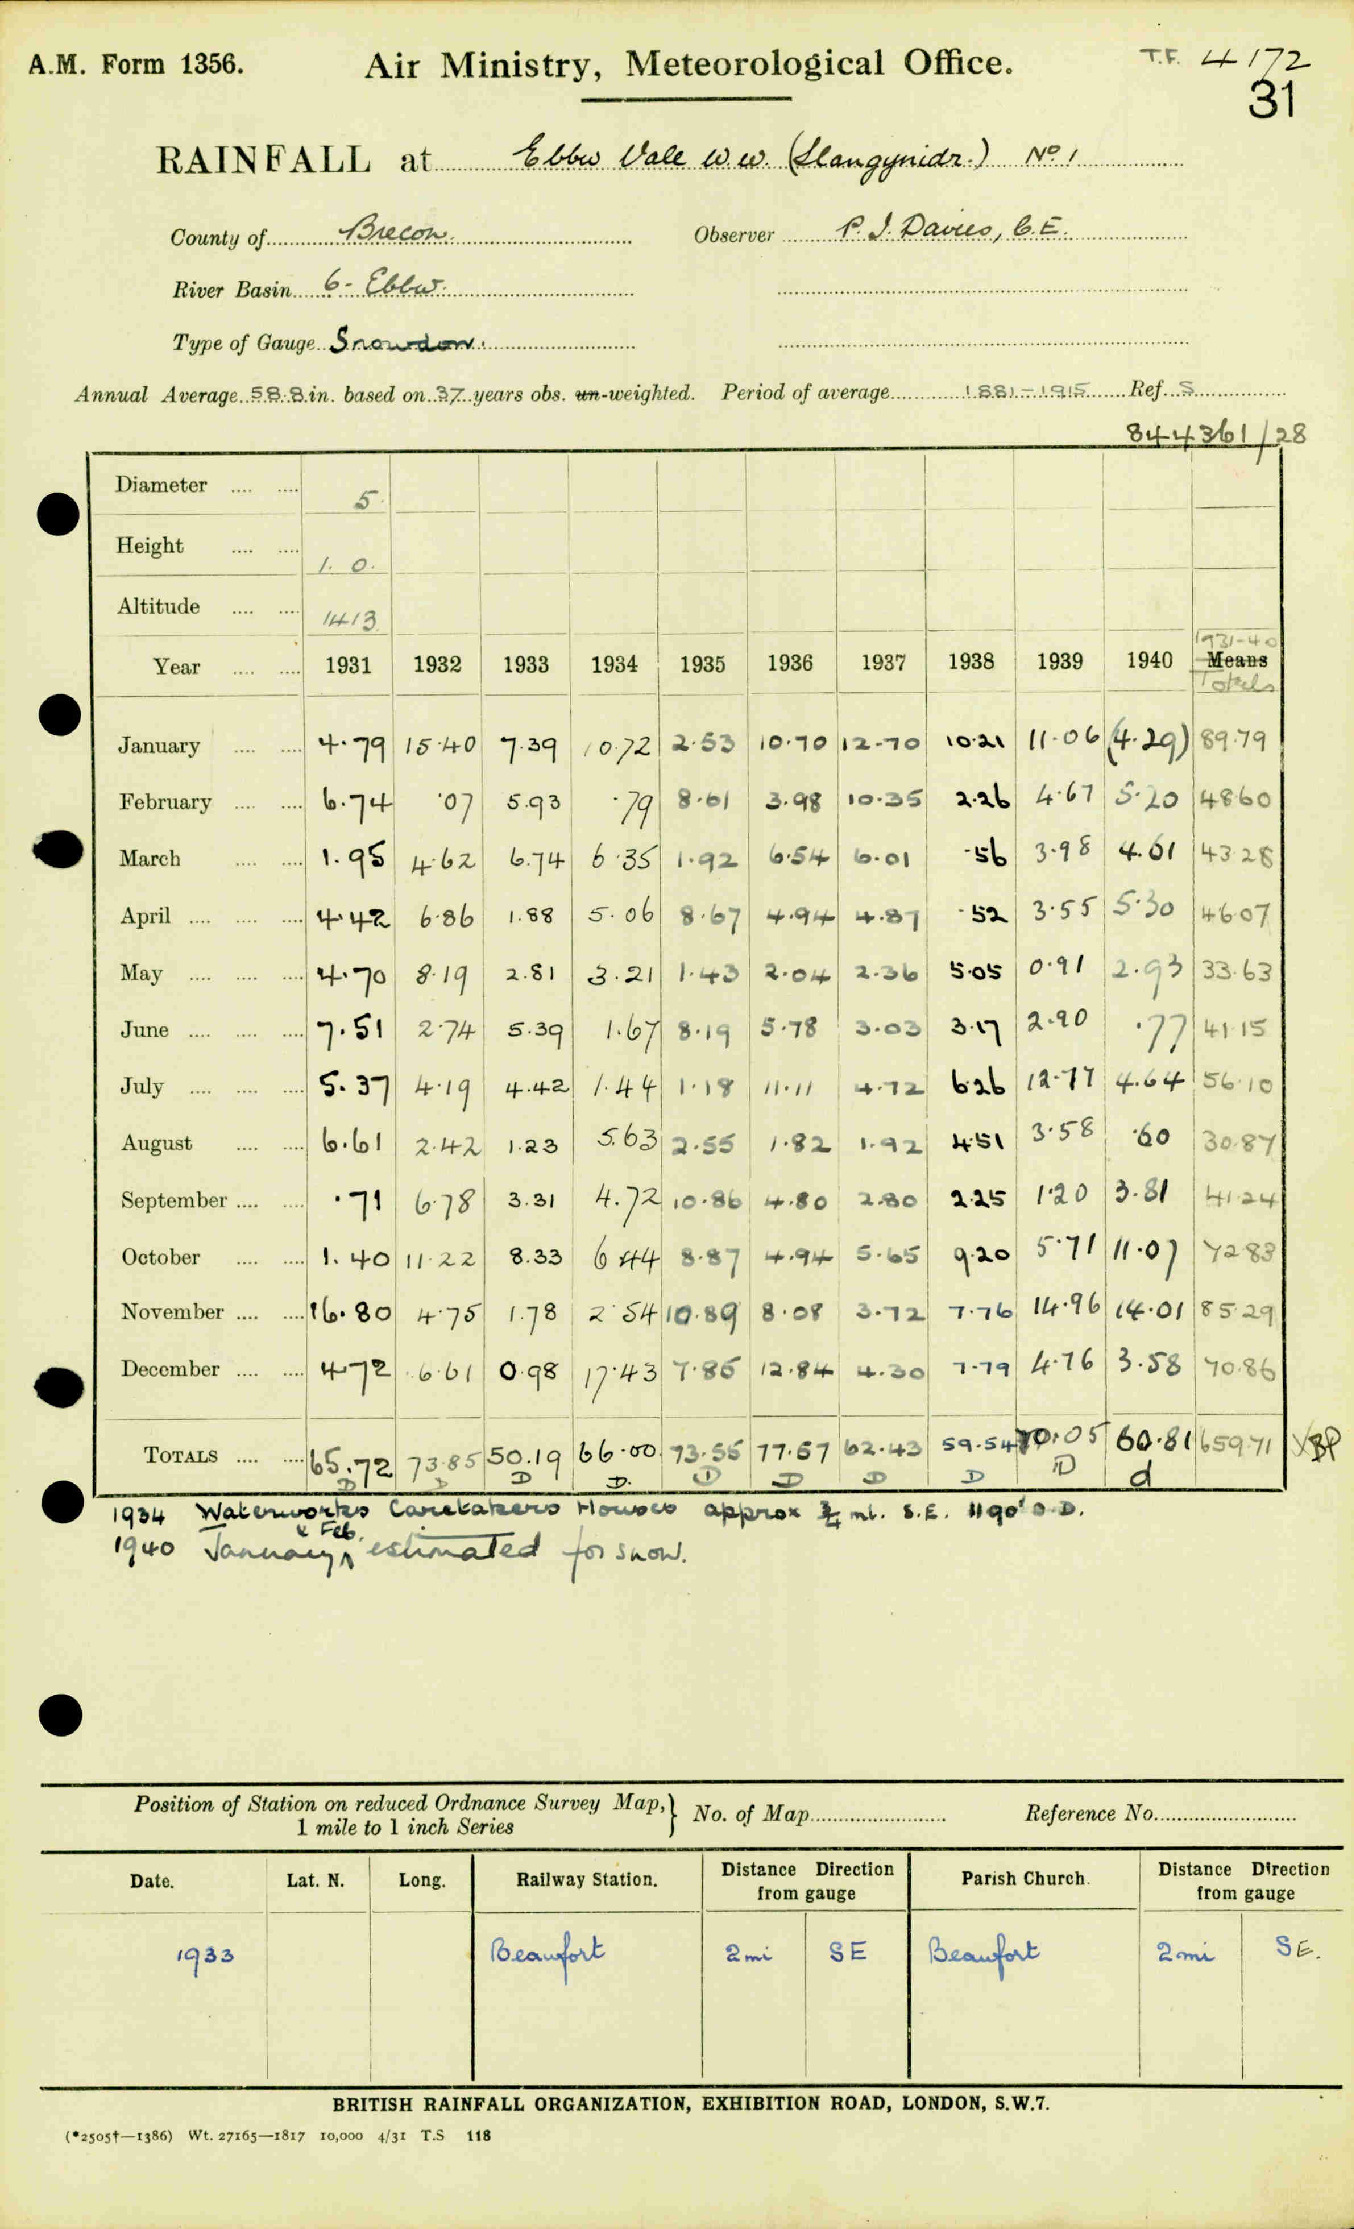 A.M. Form 1356. Air Ministry, Meteorological Office. T.F. 4172
31
RAINFALL at Ebbw Vale W.W. (Llangynidr.) No 1
County of Brecon. Observer P. J. Davies, C.E.
River Basin 6 - Ebbw.
Type of Gauge Snowdon.
Annual Average 58.8 in. based on 37 years obs. un-weighted. Period of average 1881-1915 Ref. S
844361/28
Diameter 5
Height 1. 0.
Altitude 1413
1931-40
Year 1931 1932 1933 1934 1935 1936 1937 1938 1939 1940 Means
Totals
January 4.79 15.40 7.39 10.72 2.53 10.70 12.70 10.21 11.06 (4.29) 89.79
February 6.74 .07 5.93 .79 8.61 3.98 10.35 2.26 4.67 5.20 48.60
March 1.95 4.62 6.74 6.35 1.92 6.54 6.01 .56 3.98 4.61 43.28
April 4.42 6.86 1.88 5.06 8.67 4.94 4.87 .52 3.55 5.30 46.07
May 4.70 8.19 2.81 3.21 1.43 2.04 2.36 5.05 0.91 2.93 33.63
June 7.51 2.74 5.39 1.67 8.19 5.78 3.03 3.17 2.90 .77 41.15
July 5.37 4.19 4.42 1.44 1.18 11.11 4.72 6.26 12.77 4.64 56.10
August 6.61 2.42 1.23 5.63 2.55 1.82 1.92 4.51 3.58 .60 30.87
September .71 6.78 3.31 4.72 10.86 4.80 2.80 2.25 1.20 3.81 41.24
October 1.40 11.22 8.33 6.44 8.87 4.94 5.65 9.20 5.71 11.07 72.83
November 16.80 4.75 1.78 2.54 10.89 8.08 3.72 7.76 14.96 14.01 85.29
December 4.72 6.61 0.98 17.43 7.85 12.84 4.30 7.79 4.76 3.58 70.86
TOTALS 65.72 73.85 50.19 66.00 73.55 77.57 62.43 59.54 70.05 60.81 659.71
D D D D. D D D D D d
1934 Waterworks Caretakers Houses approx 3/4 ml. S.E. 1190' O.D.
& Feb.
1940 January estimated for snow.
Position of Station on reduced Ordnance Survey Map, No. of Map Reference No.
1 mile to 1 inch Series
Date. Lat. N. Long. Railway Station. Distance Direction from gauge Parish Church. Distance Direction from gauge
1933 Beaufort 2 mi SE Beaufort 2 mi SE.
BRITISH RAINFALL ORGANIZATION, EXHIBITION ROAD, LONDON, S.W.7.
(*2505†—1386) Wt. 27165—1817 10,000 4/31 T.S 118